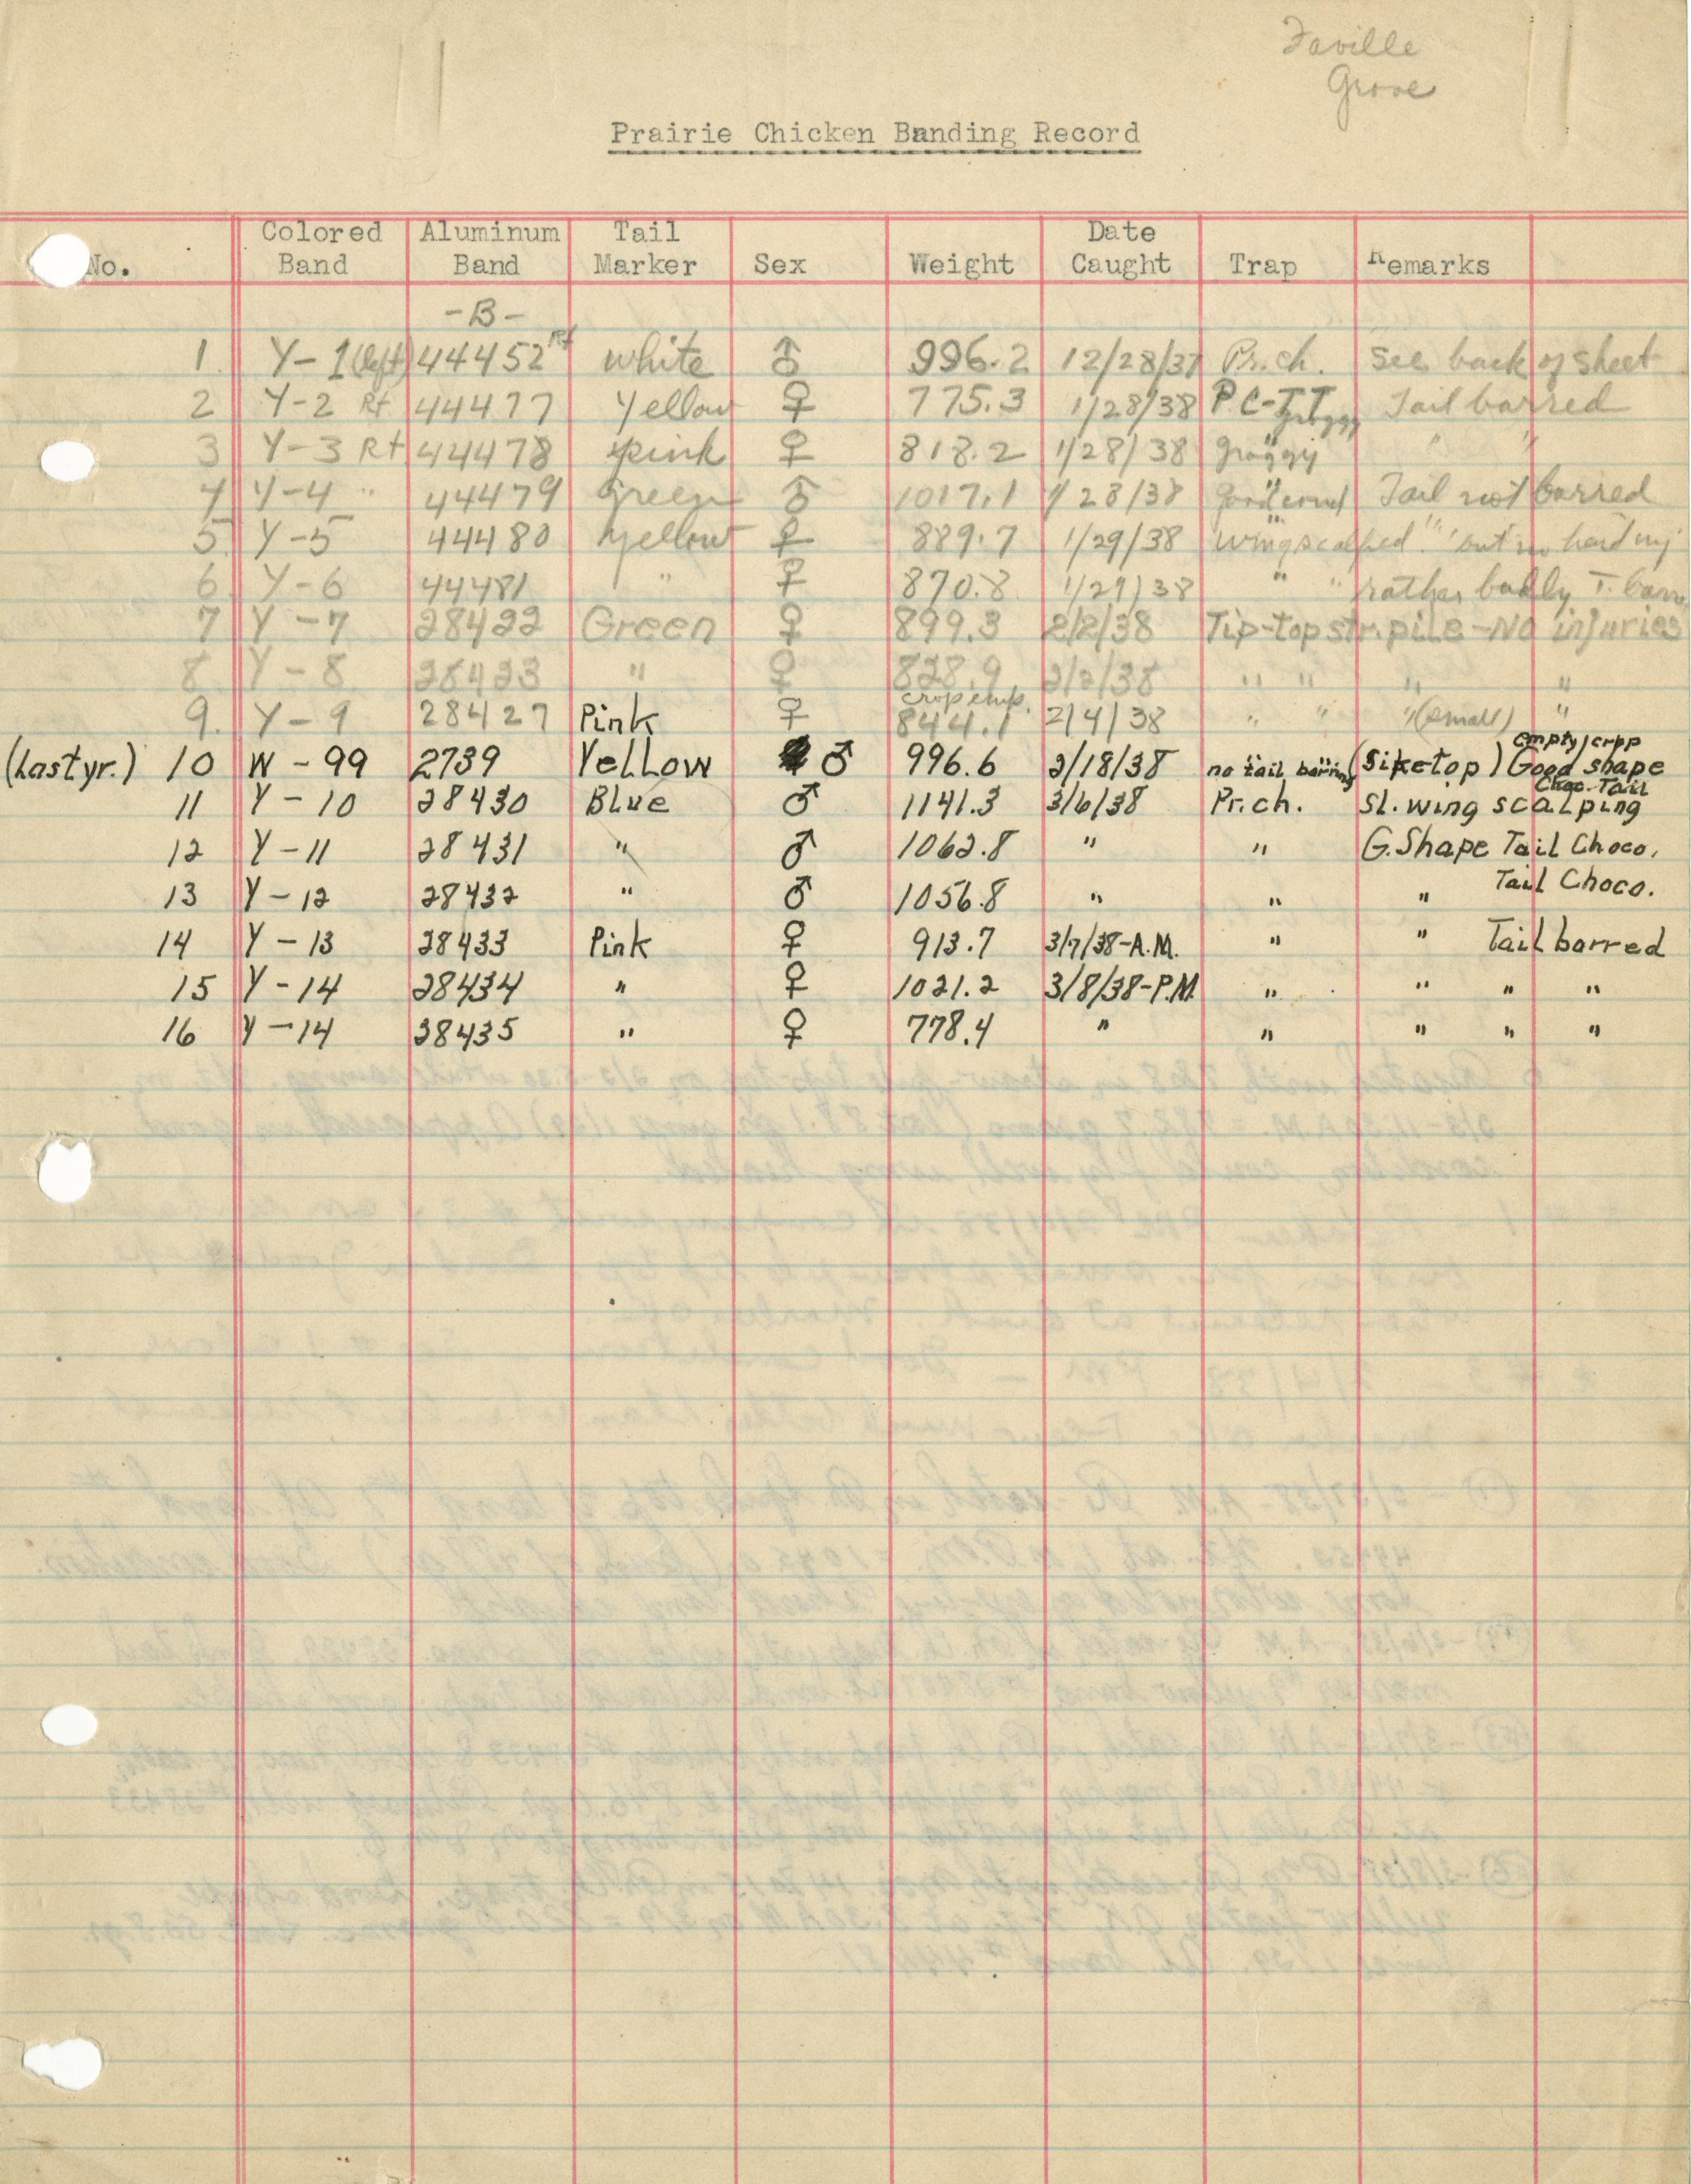 Faville
Grove
Prairie Chicken Banding Record
No. Colored Band Aluminum Band Tail Marker Sex Weight Date Caught Trap Remarks
-B-
1. Y-1 (left) 44452 Rt white ♂ 996.2 12/28/37 Pr.ch. See back of sheet
2 Y-2 Rt 44477 Yellow ♀ 775.3 1/28/38 P C-T T groggy Tail barred
3 Y-3 Rt 44478 pink ♀ 818.2 1/28/38 " groggy " "
4 Y-4 " 44479 green ♂ 1017.1 1/28/38 " good cond Tail not barred
5. Y-5 44480 yellow ♀ 889.7 1/29/38 " wing scalped " but no
6 Y-6 44481 " ♀ 870.8 1/29/38 " " rather badly T.
7 Y-7 28422 Green ♀ 899.3 2/2/38 Tip-top str. pile-No injuries
8 Y-8 28423 " ♀ 828.9 2/2/38 " " " "
9. Y-9 28427 Pink ♀ crop emp. 844.1 2/4/38 " " " (small) "
(Last yr.) 10 W-99 2739 Yellow ♂ 996.6 2/18/38 no tail barring (Siketop) Good shape empty crop
11 Y-10 28430 Blue ♂ 1141.3 3/6/38 Pr.ch. Sl. wing scalping Choc. Tail
12 Y-11 28431 " ♂ 1062.8 " " G. Shape Tail Choco.
13 Y-12 28432 " ♂ 1056.8 " " " Tail Choco.
14 Y-13 28433 Pink ♀ 913.7 3/7/38-A.M. " " Tail barred
15 Y-14 28434 " ♀ 1021.2 3/8/38-P.M. " " " "
16 Y-14 28435 " ♀ 778.4 " " " " "